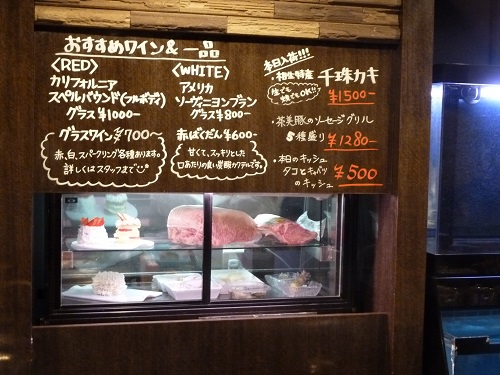 おすすめワイン&一品
〈RED〉
カリフォルニア
スペルバウンド(フルボディ)
グラス¥1000ー
グラスワイン¥700〜
赤、白、スパークリング各種あります。
詳しくはスタッフまで
〈WHITE〉
アメリカ
ソーヴィニヨンブラン
グラス¥800ー
赤ばくだん¥600ー
甘くて、スッキリとした
口あたりの良い炭酸カクテルです。
本日入荷!!!
・相生特産 千珠カキ
生でも
焼でもOK!!
¥1500ー
・茶美豚のソーセージグリル
5種盛り ¥1280ー
・本日のキッシュ
タコとキャベツ
のキッシュ
¥500